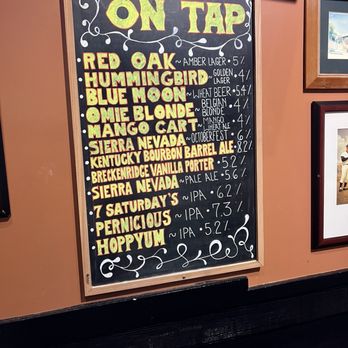 ON TAP
RED OAK ~ AMBER LAGER • 5%
HUMMINGBIRD ~ GOLDEN LAGER • 4%
BLUE MOON ~ WHEAT BEER • 5.4%
OMIE BLONDE ~ BELGIAN BLONDE • 4%
MANGO CART ~ MANGO WHEAT ALE • 4%
SIERRA NEVADA ~ OCTOBERFEST • 6%
KENTUCKY BOURBON BARREL ALE • 8.2%
BRECKENRIDGE VANILLA PORTER • 5.2%
SIERRA NEVADA ~ PALE ALE • 5.6%
7 SATURDAY'S ~ IPA • 6.2%
PERNICIOUS ~ IPA • 7.3%
HOPPYUM ~ IPA • 5.2%